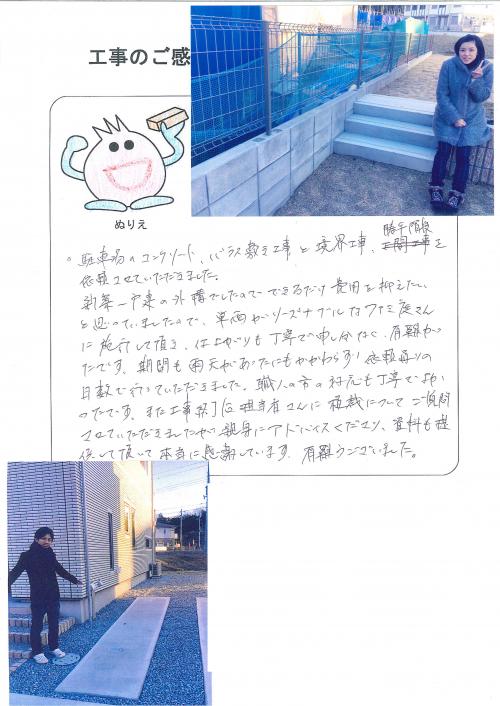 工事のご感
ぬりえ
勝手階段
。駐車場のコンクリート、バラス敷き工事と境界工事、玄関工事を
依頼させていただきました。
新築一戸建の外構でしたのでできるだけ費用を抑えたい
と思っていましたので、単価がリーズナブルなファミ庭さん
に施行して頂き、仕上がりも丁寧で申し分なく、有難かっ
たです。期間も雨天があったにもかかわらず、依頼通りの
日数で行っていただきました。職人の方の対応も丁寧でよか
ったです。また工事終了後担当者さんに植栽についてご質問
させていただきましたが親身にアドバイスくださり、資料も提
供して頂いて本当に感謝しています。有難うございました。